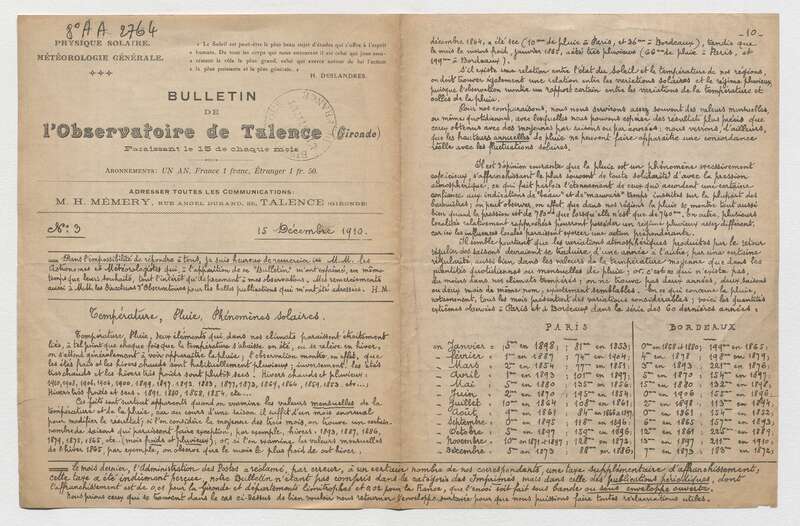 8° A A 2764
PHYSIQUE SOLAIRE.
MÉTÉOROLOGIE GÉNÉRALE.
« Le Soleil est peut-être le plus beau sujet d'études qui s'offre à l'esprit
humain. De tous les corps qui nous entourent il est celui qui joue
le rôle le plus grand, celui qui exerce autour de lui l'action
la plus puissante et la plus générale. »
H. DESLANDRES.
BULLETIN
DE
l'Observatoire de Talence (Gironde)
Paraissant le 15 de chaque mois
ABONNEMENTS: UN AN, France 1 franc, Étranger 1 fr. 50.
ADRESSER TOUTES LES COMMUNICATIONS:
M. H. MÉMERY, RUE ANGEL DURAND, TALENCE (GIRONDE)
N° 3 15 Décembre 1910.
Dans l'impossibilité de répondre à tous, je suis heureux de remercier ici M.M. les
Astronomes et Météorologistes qui, à l'apparition de ce "Bulletin" m'ont exprimé, en même
temps que leurs souhaits, tout l'intérêt qu'ils prennent à mes observations. Mes remerciements
aussi à M.M. les Directeurs d'Observatoires pour les belles publications qui m'ont été adressées. H. M.
Température, Pluie, Phénomènes solaires.
Température, Pluie, deux éléments qui dans nos climats paraissent étroitement
liés, à tel point que chaque fois que la température s'abaisse en été, ou se relève en hiver,
on s'attend généralement à voir apparaître la pluie; l'observation montre, en effet, que
les étés frais et les hivers chauds sont habituellement pluvieux; inversement, les étés
très chauds et les hivers très froids sont plutôt secs. Hivers chauds et pluvieux:
Hivers très froids et secs: 1891, 1880, 1858, 1854 etc...
Ce fait est surtout apparent quand on examine les valeurs mensuelles de la
température et de la pluie, car au cours d'une saison il suffit d'un mois anormal
pour modifier le résultat; si l'on considère la moyenne des trois mois, on trouve un certain
nombre de saisons qui paraissent faire exception, par exemple, hivers: 1893, 1887, 1886,
1879, 1875, 1865, etc. (mois froids et pluvieux); or, si l'on examine les valeurs mensuelles
de l'hiver 1865, par exemple, on observe que le mois le plus froid de cet hiver,
le mois dernier, l'Administration des Postes a réclamé, par erreur, à un certain nombre de nos correspondants, une taxe supplémentaire d'affranchissement;
cette taxe a été indûment perçue, notre Bulletin n'étant pas compris dans la catégorie des Imprimés, mais dans celle des publications périodiques, dont
l'affranchissement est de 0,01 pour la Gironde et départements limitrophes et 0,02 pour la France, que l'envoi soit fait sous bande ou sous enveloppe ouverte.
Nous prions ceux qui se trouvent dans le cas ci-dessus de bien vouloir nous retourner l'enveloppe surtaxée pour que nous puissions faire toutes réclamations utiles.
-10-
décembre 1864, a été sec (10mm de pluie à Paris, et 36mm à Bordeaux), tandis que
le mois le moins froid, janvier 1865, a été très pluvieux (66mm de pluie à Paris, et
199mm à Bordeaux).
S'il existe une relation entre l'état du Soleil et la température de nos régions,
on doit trouver également une relation entre les variations solaires et le régime pluvieux,
puisque l'observation montre un rapport certain entre les variations de la température et
celles de la pluie.
Pour nos comparaisons, nous nous servirons assez souvent des valeurs mensuelles,
ou même quotidiennes, avec lesquelles nous pouvons espérer des résultats plus précis que
ceux obtenus avec des moyennes par saisons ou par années; nous verrons, d'ailleurs,
que les hauteurs annuelles de pluie ne peuvent faire apparaître une concordance
réelle avec les fluctuations solaires.
Il est d'opinion courante que la pluie est un phénomène excessivement
capricieux, s'affranchissant le plus souvent de toute solidarité avec la pression
atmosphérique, ce qui fait parfois l'étonnement de ceux qui accordent une certaine
confiance aux indications de "beau" et de "mauvais" temps inscrites sur la plupart des
baromètres; on peut observer, en effet, que dans nos régions la pluie se montre tout aussi
bien quand la pression est de 780mm que lorsqu'elle n'est que de 740mm. En outre, plusieurs
localités relativement rapprochées pourront posséder un régime pluvieux assez différent,
car ici les influences locales paraissent exercer une action prépondérante.
Il semble pourtant que les variations atmosphériques produites par le retour
régulier des saisons devraient se traduire, d'une année à l'autre, par une certaine
régularité, aussi bien dans les valeurs de la température moyenne que dans les
quantités quotidiennes ou mensuelles de pluie; or, c'est ce qui n'existe pas.
Du moins dans nos climats tempérés; on ne trouve pas deux années, deux saisons
ou deux mois de même nom, vraiment semblables. En ce qui concerne la pluie,
notamment, tous les mois présentent des variations considérables; voici les quantités
extrêmes relevées à Paris et à Bordeaux dans la série des 60 dernières années:
PARIS BORDEAUX
en Janvier: 5mm en 1898; 81mm en 1853; 0mm en 1858 et 1880; 199mm en 1865;
" Février: 1 en 1887; 74 en 1904; 4 en 1878; 198 en 1879;
" Mars: 2 en 1854; 77 en 1851; 3 en 1893; 221 en 1876;
" Avril: 1 en 1893; 105 en 1897; 5 en 1870; 154 en 1897;
" Mai: 5 en 1880; 135 en 1856; 15 en 1880; 132 en 1898;
" Juin: 2 en 1870; 193 en 1854; 10 en 1906; 158 en 1896;
" Juillet: 10 en 1864; 108 en 1861; 2 en 1889; 113 en 1894;
" Août: 9 en 1861; 0 en 1861; 154 en 1852;
" Septembre: 1 en 1895; 118 en 1896; 0 en 1865; 157 en 1893;
" Octobre: 9 en 1897; 150 en 1896; 12 en 1861; 225 en 1889;
" Novembre: 10 en 1871 et 1897; 128 en 1872; 13 en 1897; 211 en 1910;
" Décembre: 5 en 1873; 88 en 1886; 7 en 1873; 183 en 1872;